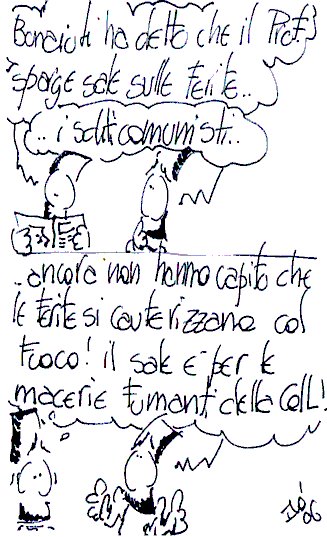 Bonaiuti ha detto che il Prof.
sparge sale sulle ferite..
.. i soliti comunisti..
..ancora non hanno capito che
le ferite si cauterizzano col
fuoco! il sale è per le
macerie fumanti della CdL!